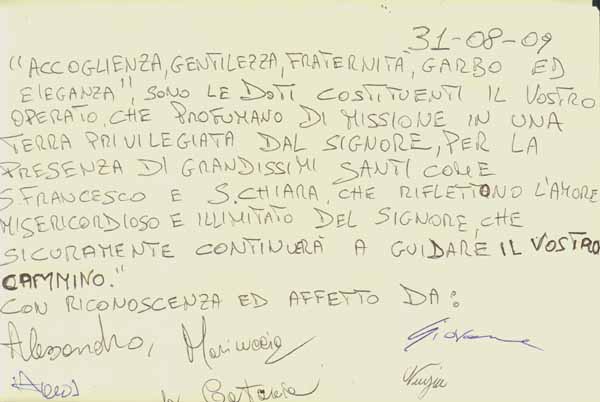 31-08-09
"ACCOGLIENZA, GENTILEZZA, FRATERNITÀ, GARBO ED
ELEGANZA", SONO LE DOTI COSTITUENTI IL VOSTRO
OPERATO, CHE PROFUMANO DI MISSIONE IN UNA
TERRA PRIVILEGIATA DAL SIGNORE, PER LA
PRESENZA DI GRANDISSIMI SANTI COME
S. FRANCESCO E S. CHIARA, CHE RIFLETTONO L'AMORE
MISERICORDIOSO E ILLIMITATO DEL SIGNORE, CHE
SICURAMENTE CONTINUERÀ A GUIDARE IL VOSTRO
CAMMINO."
CON RICONOSCENZA ED AFFETTO DA:
Alessandro, Mariuccia